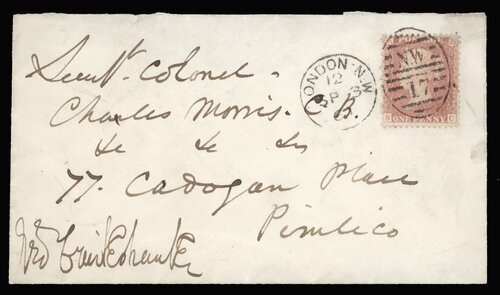 Lieut. Colonel
Charles Morris.
&c &c &c
77. Cadogan Place
Pimlico
LONDON·N.W
12
SP
B.
NW
17
ONE PENNY